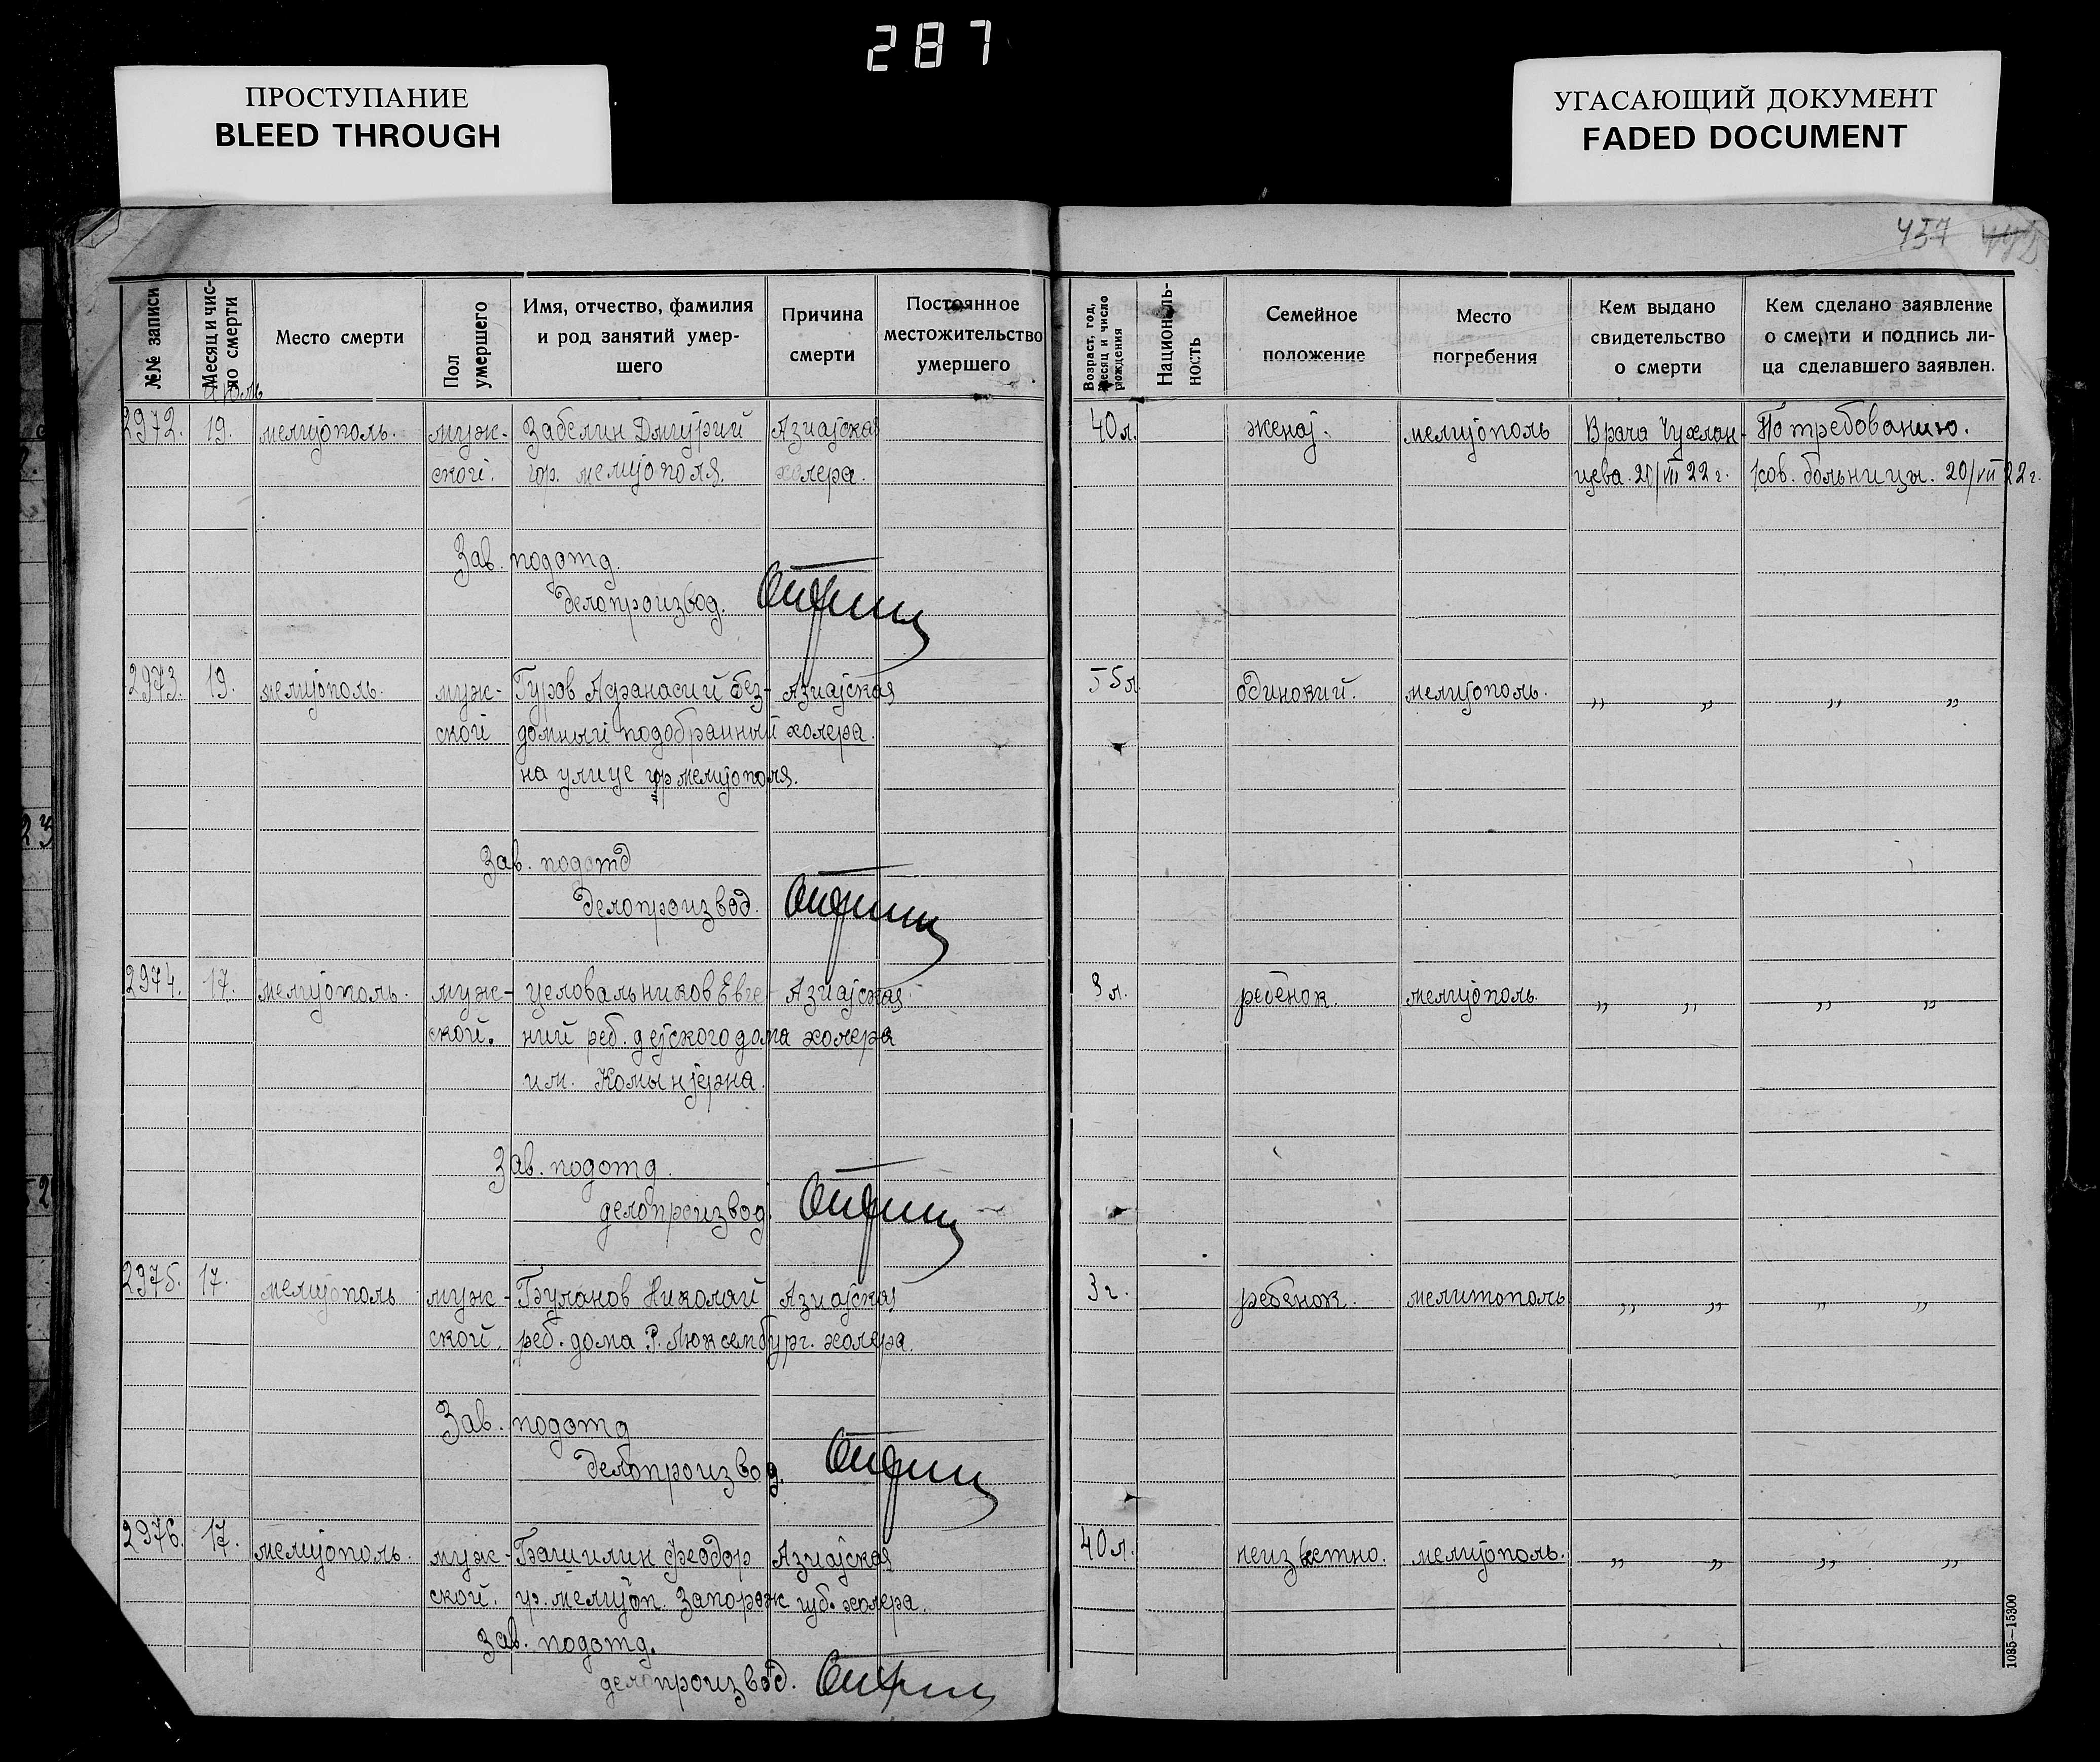 287
ПРОСТУПАНИЕ
BLEED THROUGH
УГАСАЮЩИЙ ДОКУМЕНТ
FADED DOCUMENT
457 442
№№ записи
Месяц и число смерти
Место смерти
Пол умершего
Имя, отчество, фамилия
и род занятий умер-
шего
Причина
смерти
Постоянное
местожительство
умершего
Возраст, год, месяц и число рождения
Националь-
ность
Семейное
положение
Место
погребения
Кем выдано
свидетельство
о смерти
Кем сделано заявление
о смерти и подпись ли-
ца сделавшего заявлен.
Июль
2972. 19. мелитополь. муж- Забелин Дмитрий Азиатская 40 л. женат. мелитополь Врача Чухлан- По требованию.
ской. гр. мелитополя. холера. цева. 20/VII 22 г. сов. больницы. 20/VII 22 г.
Зав. подотд.
делопроизвод.
2973. 19. мелитополь. муж- Гуров Афанасий без- Азиатская 55 л. одинокий. мелитополь. „ „ „ „
ской домный подобранный холера.
на улице гр мелитополя.
Зав. подотд
делопроизвод.
2974. 17. мелитополь. муж- целовальников Евге- Азиатская. л. ребенок. мелитополь. „ „ „ „
ской. ний реб. детского дома холера
им. Комынтерна.
Зав. подотд.
делопроизвод.
2975. 17. мелитополь муж- Буланов Николай Азиатская 3 г. ребенок. мелитополь „ „ „ „
ской. реб. дома Р. Люксембург. холера.
Зав. подотд
делопроизвод.
2976. 17. мелитополь. муж- Феодор Азиатская 40 л. неизвестно. мелитополь. „ „ „ „
ской. гр. мелитоп. Запорож губ. холера.
Зав. подотд.
делопроизвод.
1035—15300